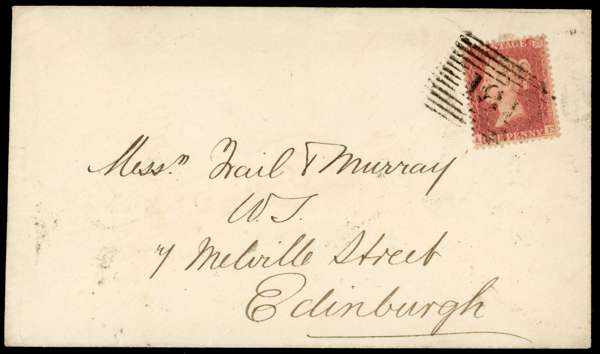 Messrs Trail & Murray
W.S.
7 Melville Street
Edinburgh
PENNY